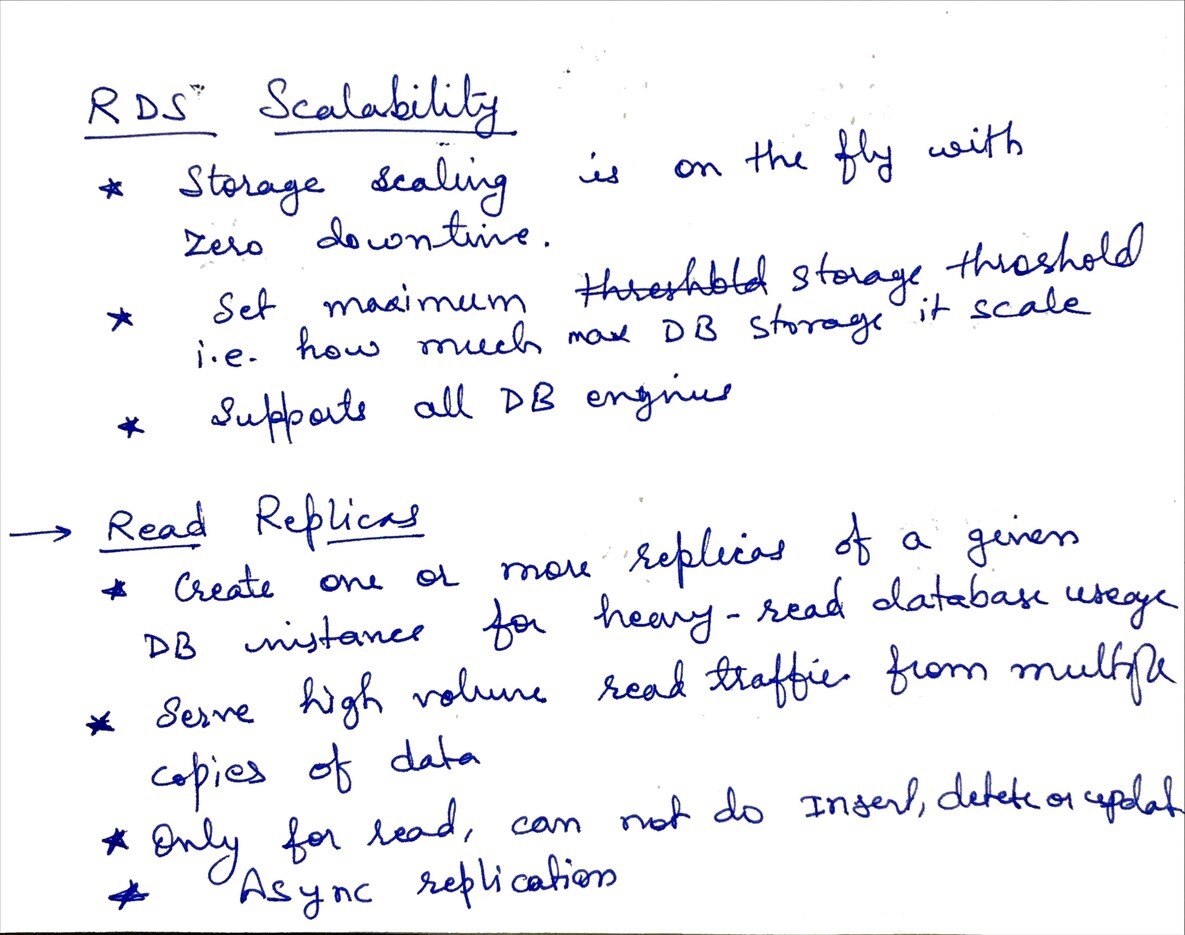 RDS Scalability
* Storage scaling is on the fly with
zero downtime.
* Set maximum threshold storage throshold
i.e. how much max DB storage it scale
* Supports all DB engines
→ Read Replicas
* Create one or more replicas of a given
DB instance for heavy-read database useage
* Serve high volume read traffic from multiple
copies of data
* Only for read, can not do Insert, delete or updat
* Async replication